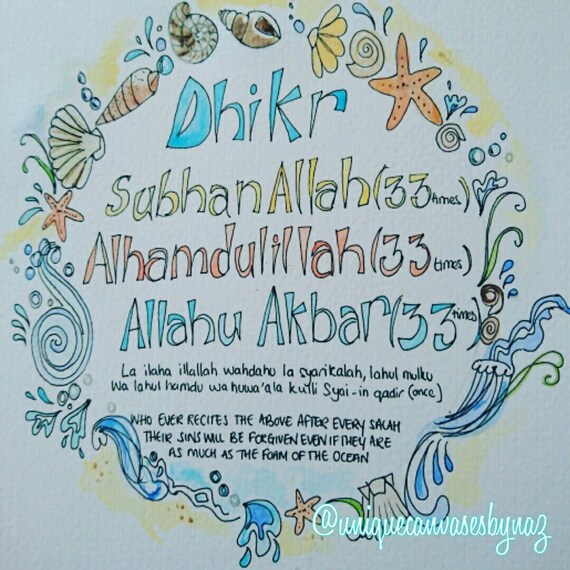 Dhikr
Subhan Allah (33 times)
Alhamdulillah (33 times)
Allahu Akbar (33 times)
La ilaha illallah wahdahu la syarikalah, lahul mulku
wa lahul hamdu wa huwa'ala kulli Syai-in qadir (once)
WHO EVER RECITES THE ABOVE AFTER EVERY SALAH
THEIR SINS WILL BE FORGIVEN EVEN IF THEY ARE
AS MUCH AS THE FOAM OF THE OCEAN
@uniquecanvasesbynaz